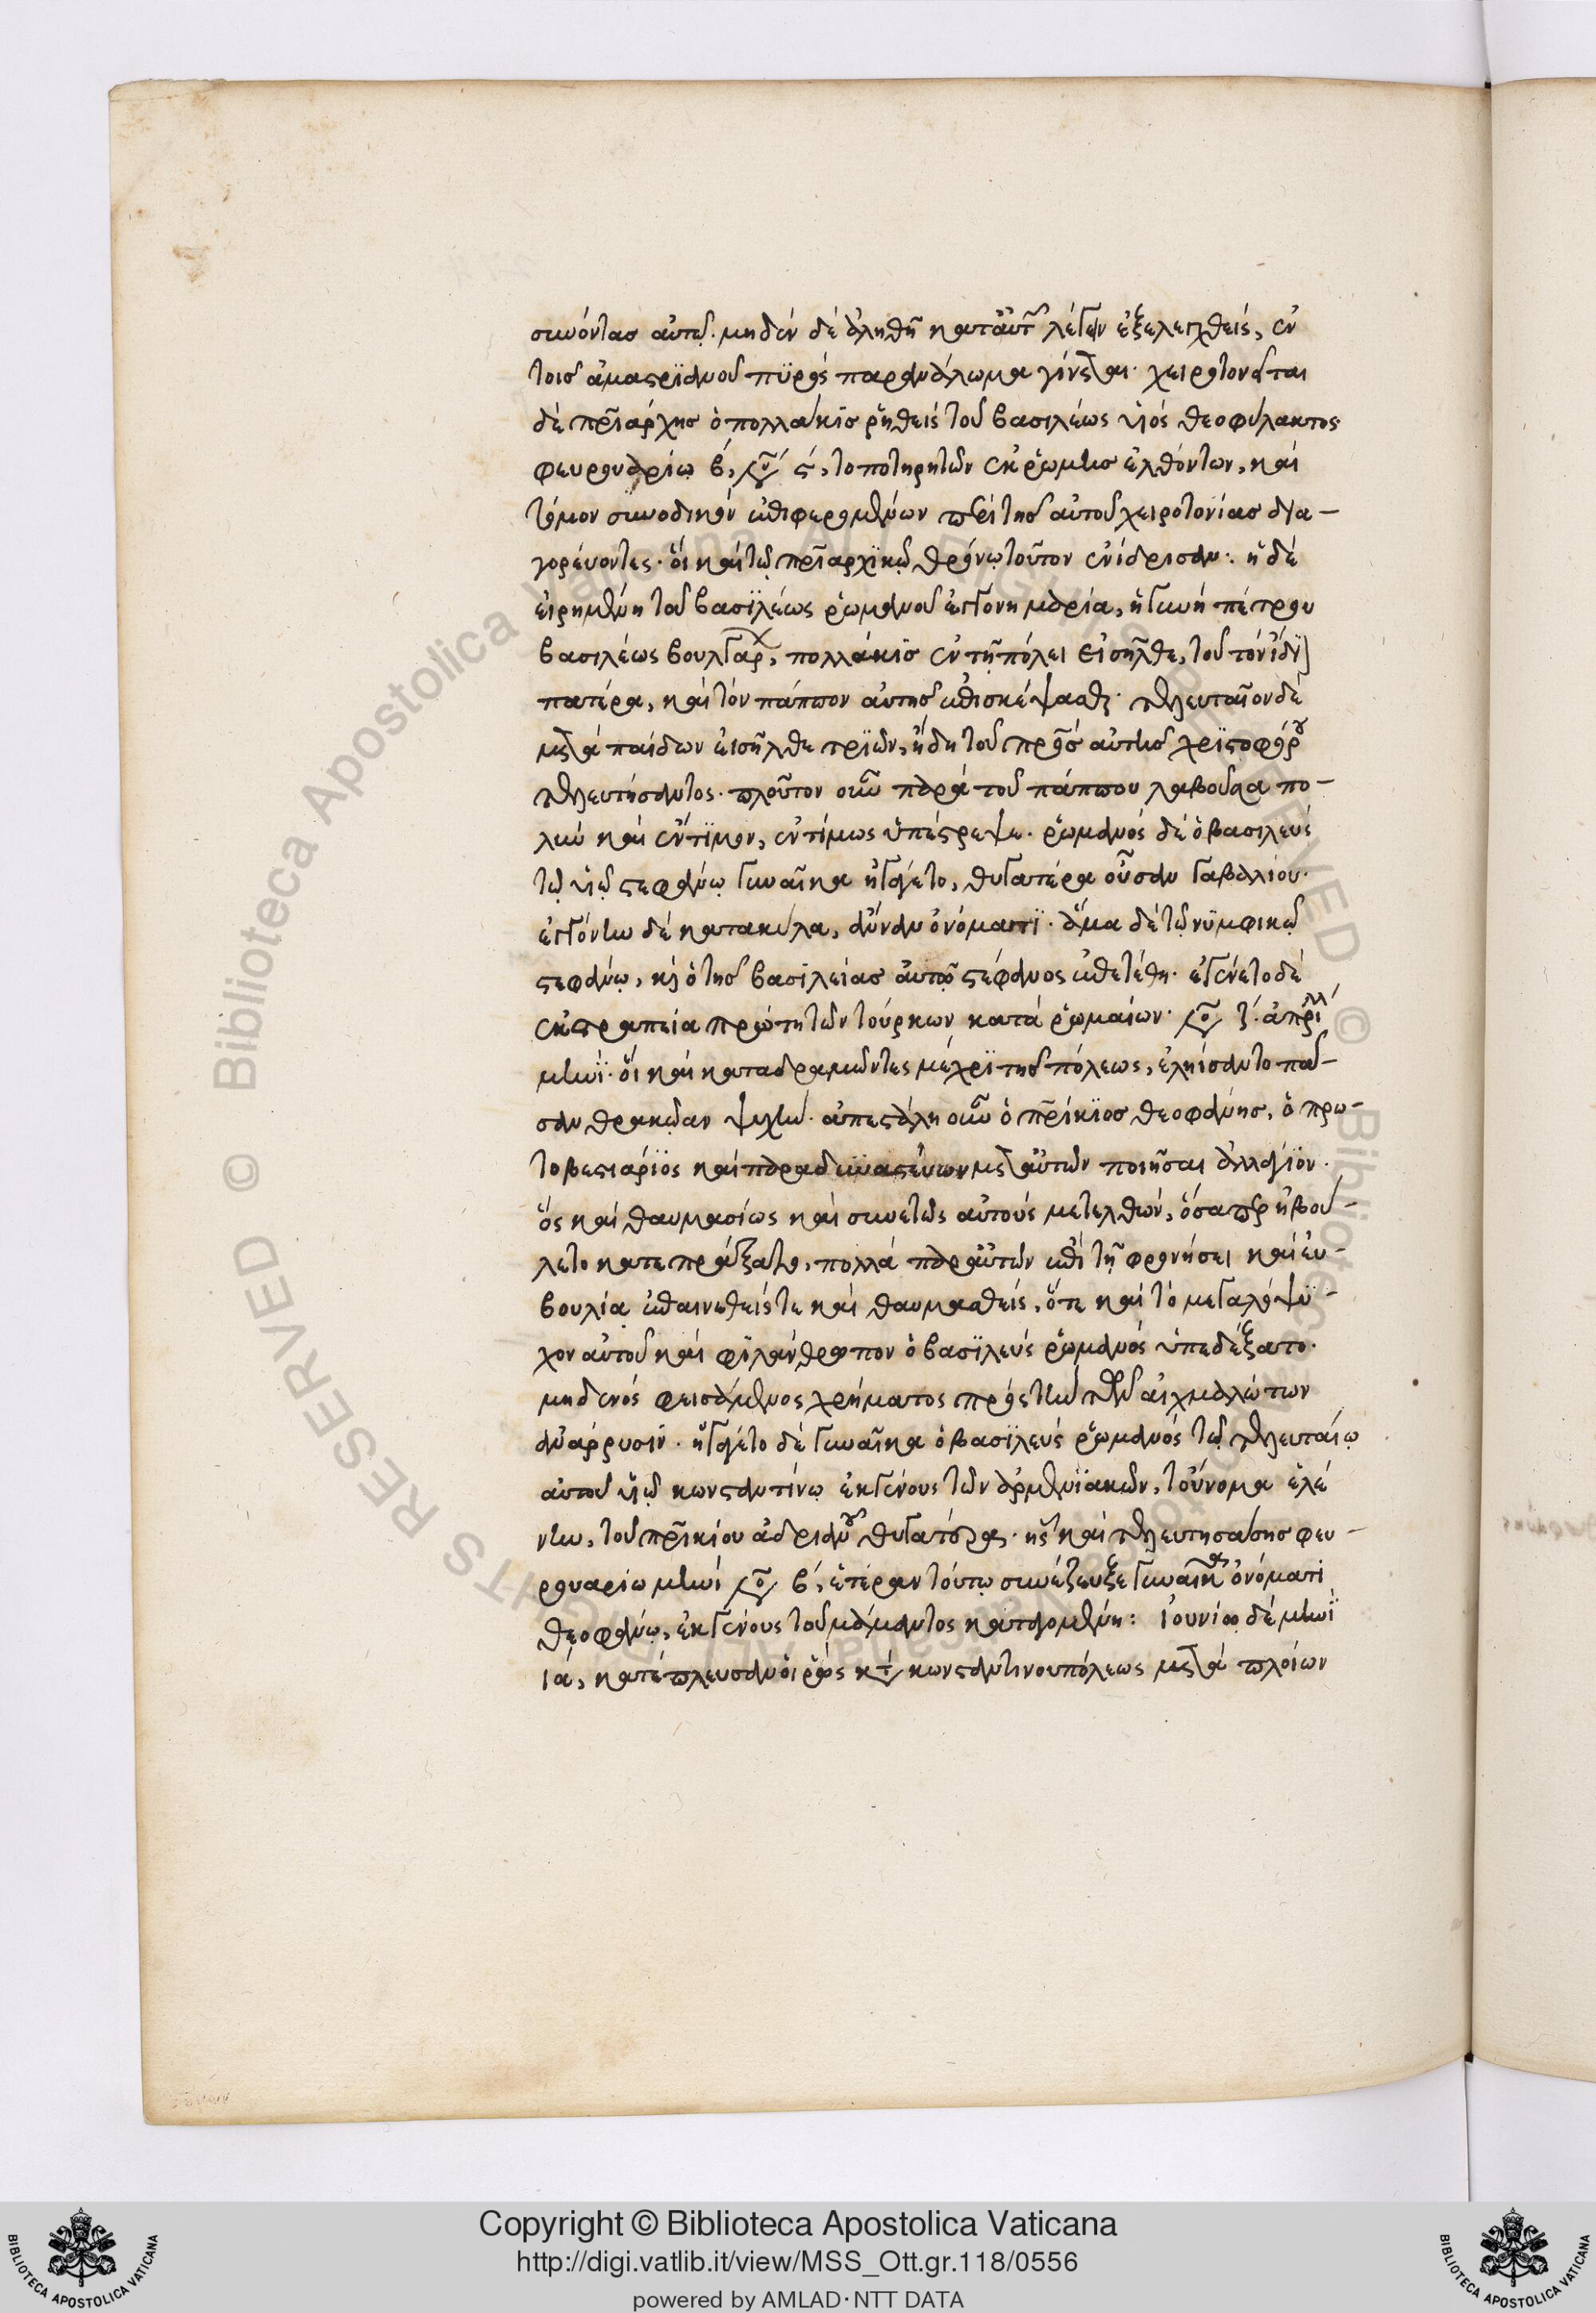 συνόντας αὐτῷ. μηδὲν δὲ ἀληθῆ κατ' αὐτοῦ λέγειν ἐξελεγχθεὶς, ἐν
τοῖς ἀμαστριανοῦ πυρὸς παρανάλωμα γίνεται. χειροτονεῖται
δὲ πατριάρχης ὁ πολλάκις ῥηθεὶς τοῦ βασιλέως υἱὸς θεοφύλακτος
φευρουαρίω β, ς, τοποτηρητῶν ἐκ ῥώμης ἐλθόντων, καὶ
τόμον συνοδικὸν ἐπιφερομένων περὶ τῆς αὐτοῦ χειροτονίας δια-
γορεύοντες. οἳ καὶ τῷ πατριαρχικῷ θρόνῳ τοῦτον ἐνίδρισαν. ἡ δὲ
εἰρημένη τοῦ βασιλέως ῥωμανοῦ ἐγγόνη μαρία, ἡ γυνὴ πέτρου
βασιλέως βουλγαρ, πολλάκις ἐν τῇ πόλει εἰσῆλθε, τοῦ τὸν ἴδιον
πατέρα, καὶ τὸν πάππον αὐτῆς ἐπισκέψασθαι. τελευταῖον δὲ
μετὰ παίδων εἰσῆλθε τριῶν, ἤδη τοῦ πατρὸς αὐτῆς χριστοφόρου
τελευτήσαντος. πλοῦτον οὖν παρὰ τοῦ πάππου λαβοῦσα πο-
λὺν καὶ ἔντιμον, ἐντίμως ὑπέστρεψε. ῥωμανὸς δὲ ὁ βασιλεὺς
τῷ υἱῷ στεφάνῳ γυναῖκα ἠγάγετο, θυγατέρα οὖσαν γαβαλίου.
ἐγγόνην δὲ κατακύλα, ἄνναν ὀνόματι. ἅμα δὲ τῷ νυμφικῷ
στεφάνῳ, καὶ ὁ τῆς βασιλείας αὐτῇ στέφανος ἐπετέθη. ἐγένετο δὲ
ἐκστραπεία πρώτη τῶν τούρκων κατὰ ῥωμαίων. ζ. ἀπριλλί
μηνί. οἳ καὶ καταδραμόντες μέχρι τῆς πόλεως, ἐληίσαντο πᾶ-
σαν θρακῷαν ψυχήν. ἀπεστάλη οὖν ὁ πατρίκιος θεοφάνης, ὁ πρω-
τοβεστιάριος καὶ παραδυναστεύων μετ' αὐτῶν ποιῆσαι ἀλλάγιον.
ὃς καὶ θαυμασίως καὶ συνετῶς αὐτοὺς μετελθών, ὅσα περ ἠβού-
λετο κατεπράξατο, πολλὰ παρ' αὐτῶν ἐπὶ τῇ φρονήσει καὶ εὐ-
βουλίᾳ ἐπαινεθείς τε καὶ θαυμασθείς, ὅτε καὶ τὸ μεγαλόψυ-
χον αὐτοῦ καὶ φιλάνθρωπον ὁ βασιλεὺς ῥωμανὸς ὑπεδείξατο.
μηδενὸς φεισάμενος χρήματος πρὸς τὴν τῶν αἰχμαλώτων
ἀνάρρυσιν. ἠγάγετο δὲ γυναῖκα ὁ βασιλεὺς ῥωμανὸς τῷ τελευταίῳ
αὐτοῦ υἱῷ κωνσταντίνῳ ἐκ γένους τῶν ἀρμενιακῶν, τοὔνομα ἑλέ
νην, τοῦ πατρικίου ἀδριανοῦ θυγατέρα. ἧς καὶ τελευτησάσης φευ-
ρουαρίω μηνὶ β, ἑτέραν τούτῳ συνέζευξε γυναῖκα ὀνόματι
θεοφάνω, ἐκ γένους τοῦ μάμαντος καταγομένη: ἰουνίω δὲ μηνὶ
ιά, κατέπλευσαν οἱ ῥῶς κατὰ κωνσταντινουπόλεως μετὰ πλοίων
Copyright © Biblioteca Apostolica Vaticana
http://digi.vatlib.it/view/MSS_Ott.gr.118/0556
powered by AMLAD·NTT DATA